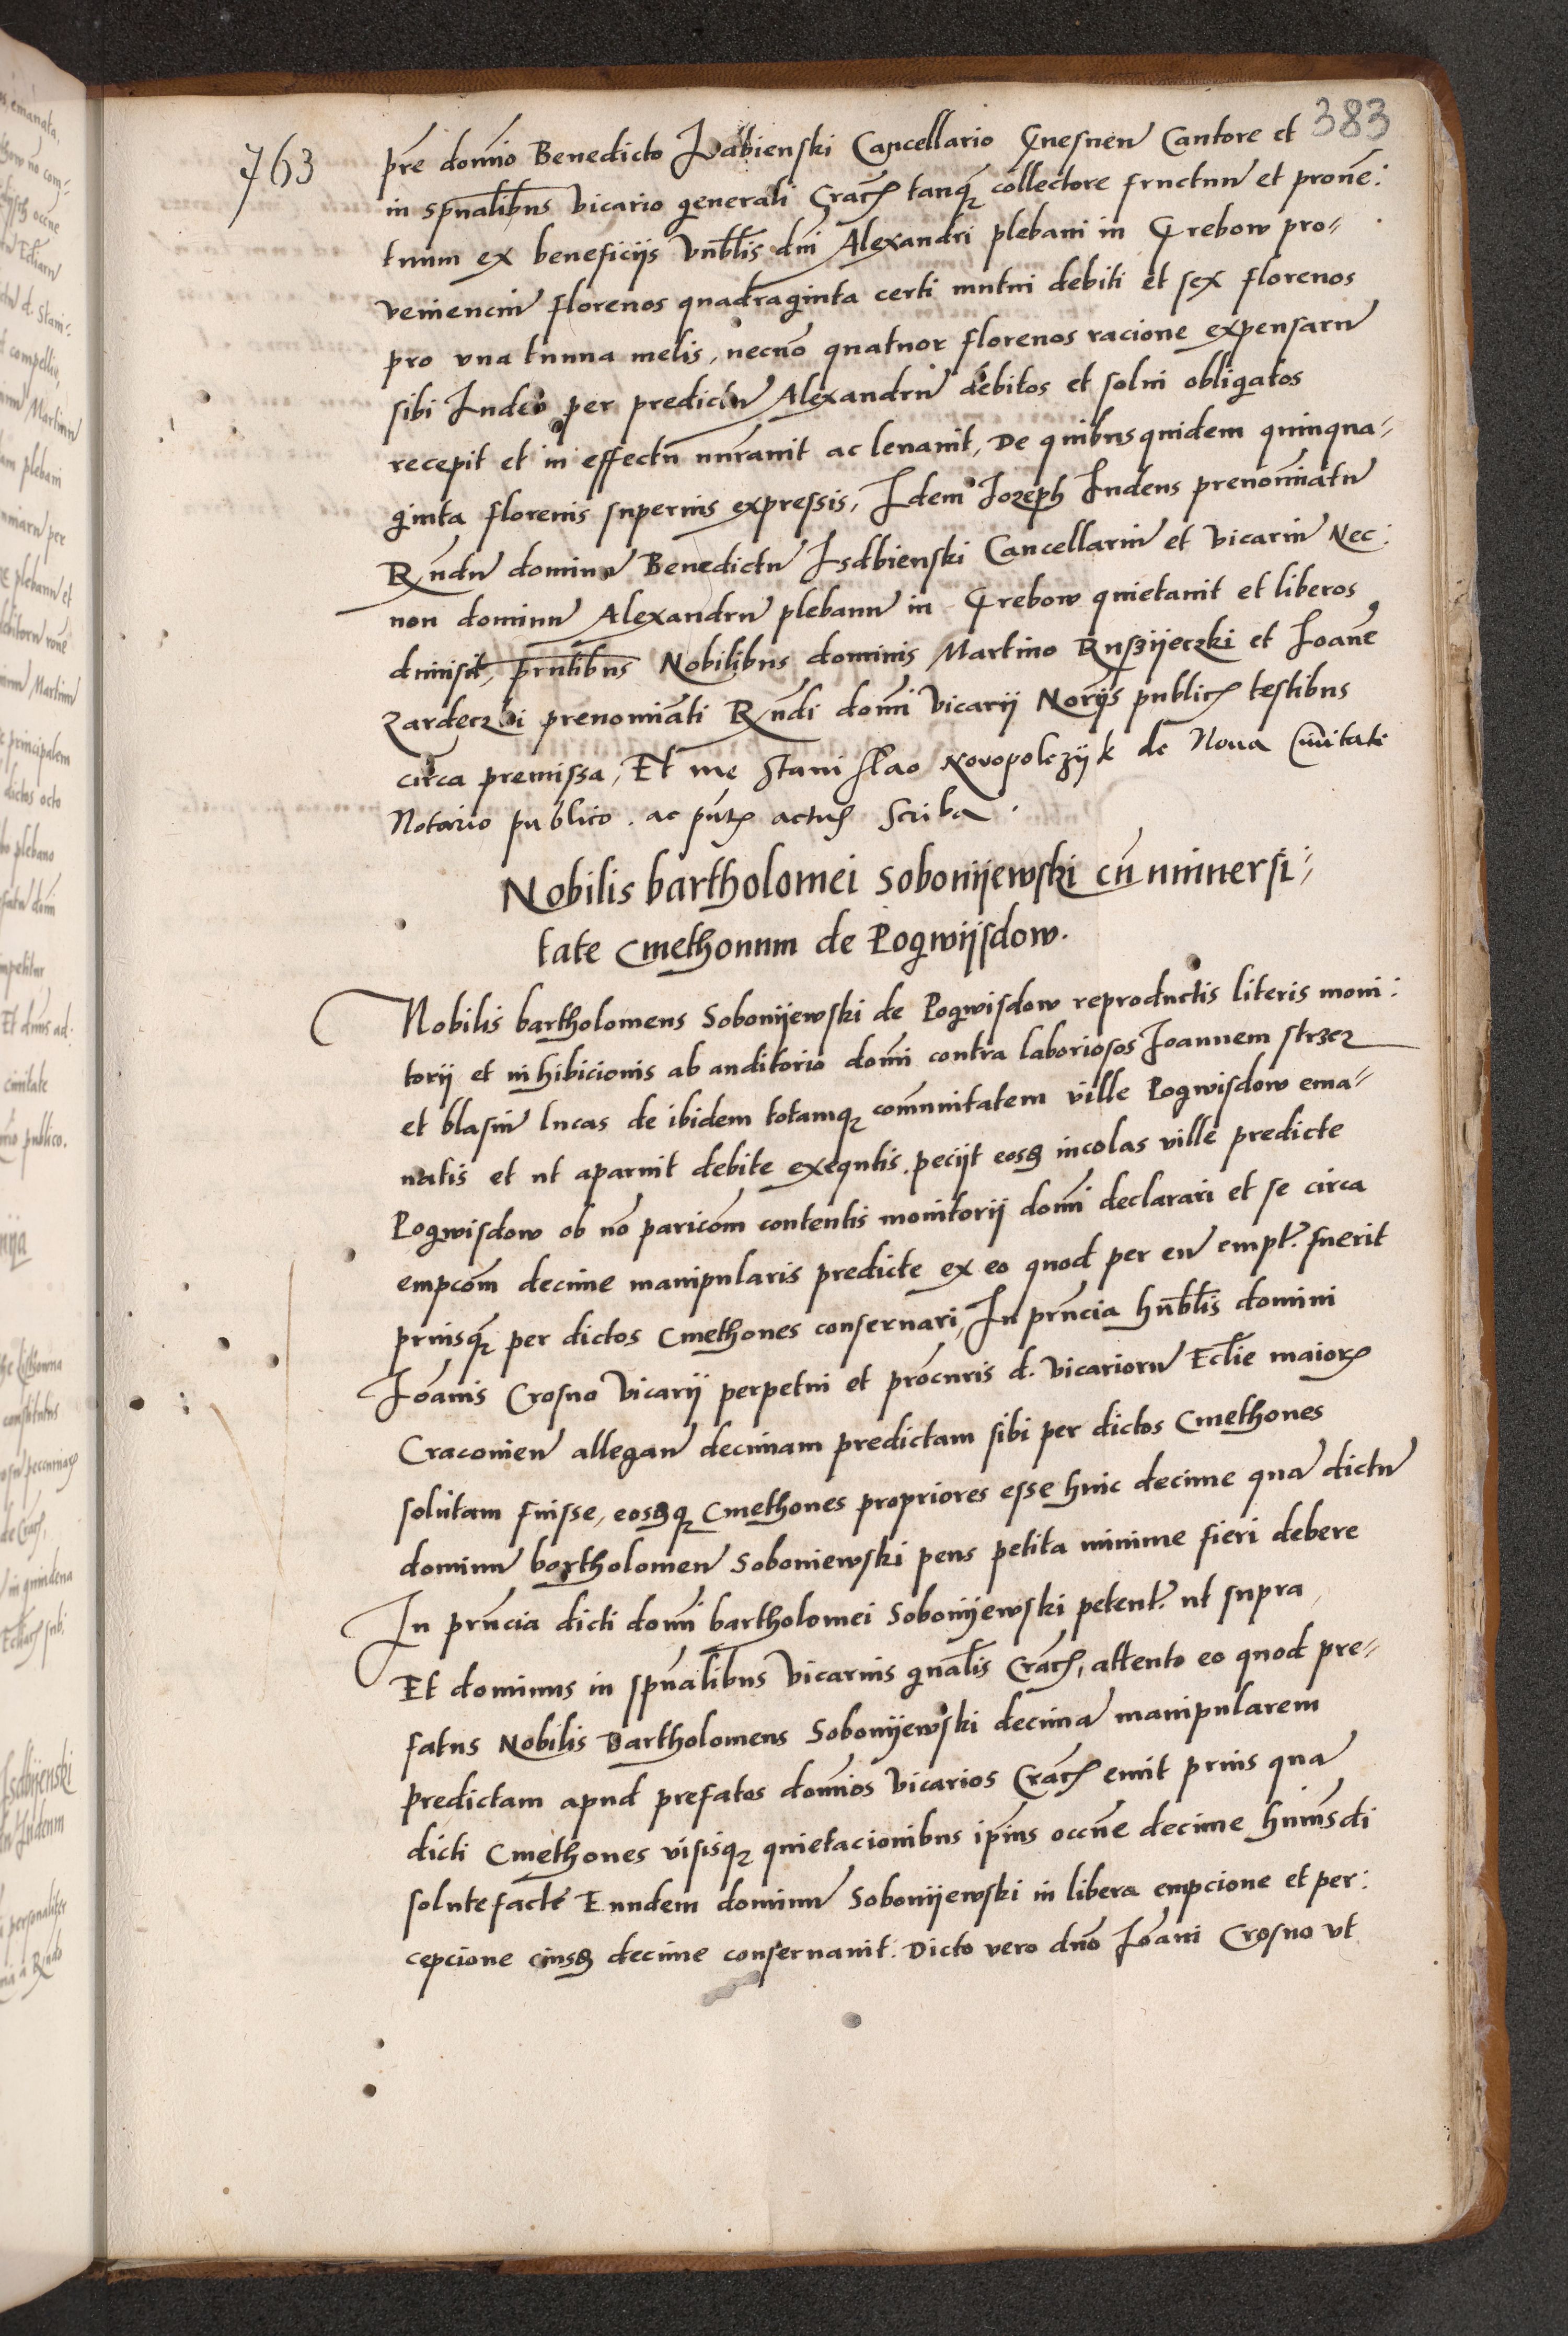 383
763
pre domino Benedicto Isdbienski Cancellario Gnesnen Cantore et
in spualibus Vicario generali Crac tanq collectore fructuu et prouē:
tuum ex beneficijs Vnblis dni Alexandri plebani in Grebow pro=
veniencium florenos quadraginta certi mutui debiti et sex florenos
pro vna tunna melis, necno quatuor florenos racione expensaru
sibi Iudeo per predictu Alexandru debitos et solui obligatos
recepit et in effectu nurauit ac leuauit, De quibusquidem quinqua=
ginta florenis superius expressis, Idem Iozeph Iudeus prenominatu
Rndu dominu Benedictu Isdbienski Cancellariu et Vicariu Nec:
non dominu Alexandru plebanu in Grebow quietauit et liberos
dimisit, prntibus Nobilibus dominis Martino Ruszijeczki et Ioane
zardeczki prenominati Rndi domi Vicarij Norijs public testibus
circa premissa, Et me Stanislao Novopolczijk de Noua Ciuitate
Notario publico. ac pnt actus Scriba.
Nobilis bartholomei Sobonijewski cu uniuersi=
tate Cmethonum de Pogwijsdow.
Nobilis bartholomeus Sobonijewski de Pogwisdow reproductis literis moni:
torij et inhibicionis ab auditorio domi contra laboriosos Ioannem strzez
et blasiu lucas de ibidem totamq comunitatem ville Pogwisdow ema=
natis et ut aparuit debite exequtis. pecijt eosd incolas ville predicte
Pogwisdow ob no paricom contentis monitorij domi declarari et se circa
empcom decime manipularis predicte ex eo quod per eu empt. fuerit
priusq per dictos Cmethones conseruari, In prncia hnblis domini
Ioanis Crosno Vicarij perpetui et procuris d. vicarioru Ecclie maior
Cracouien allegan decimam predictam sibi per dictos Cmethones
solutam fuisse, eosdq Cmethones propriores esse huic decime qua dictu
dominu bartholomeu Soboniewski pens petita minime fieri debere
In prncia dicti domi bartholomei Sobonijewski petent. ut supra
Et dominus in spualibus Vicarius gnalis Crac, attento eo quod pre=
fatus Nobilis Bartholomeus Sobonijewski decima manipularem
predictam apud prefatos dominos Vicarios Crac emit prius qua
dicti Cmethones visisq quietacionibus ipius occne decime huiusdi
solute facte Eundem dominu Sobonijewski in libera empcione et per:
cepcione eiusd decime conseruauit. Dicto vero dno Ioani Crosno vt